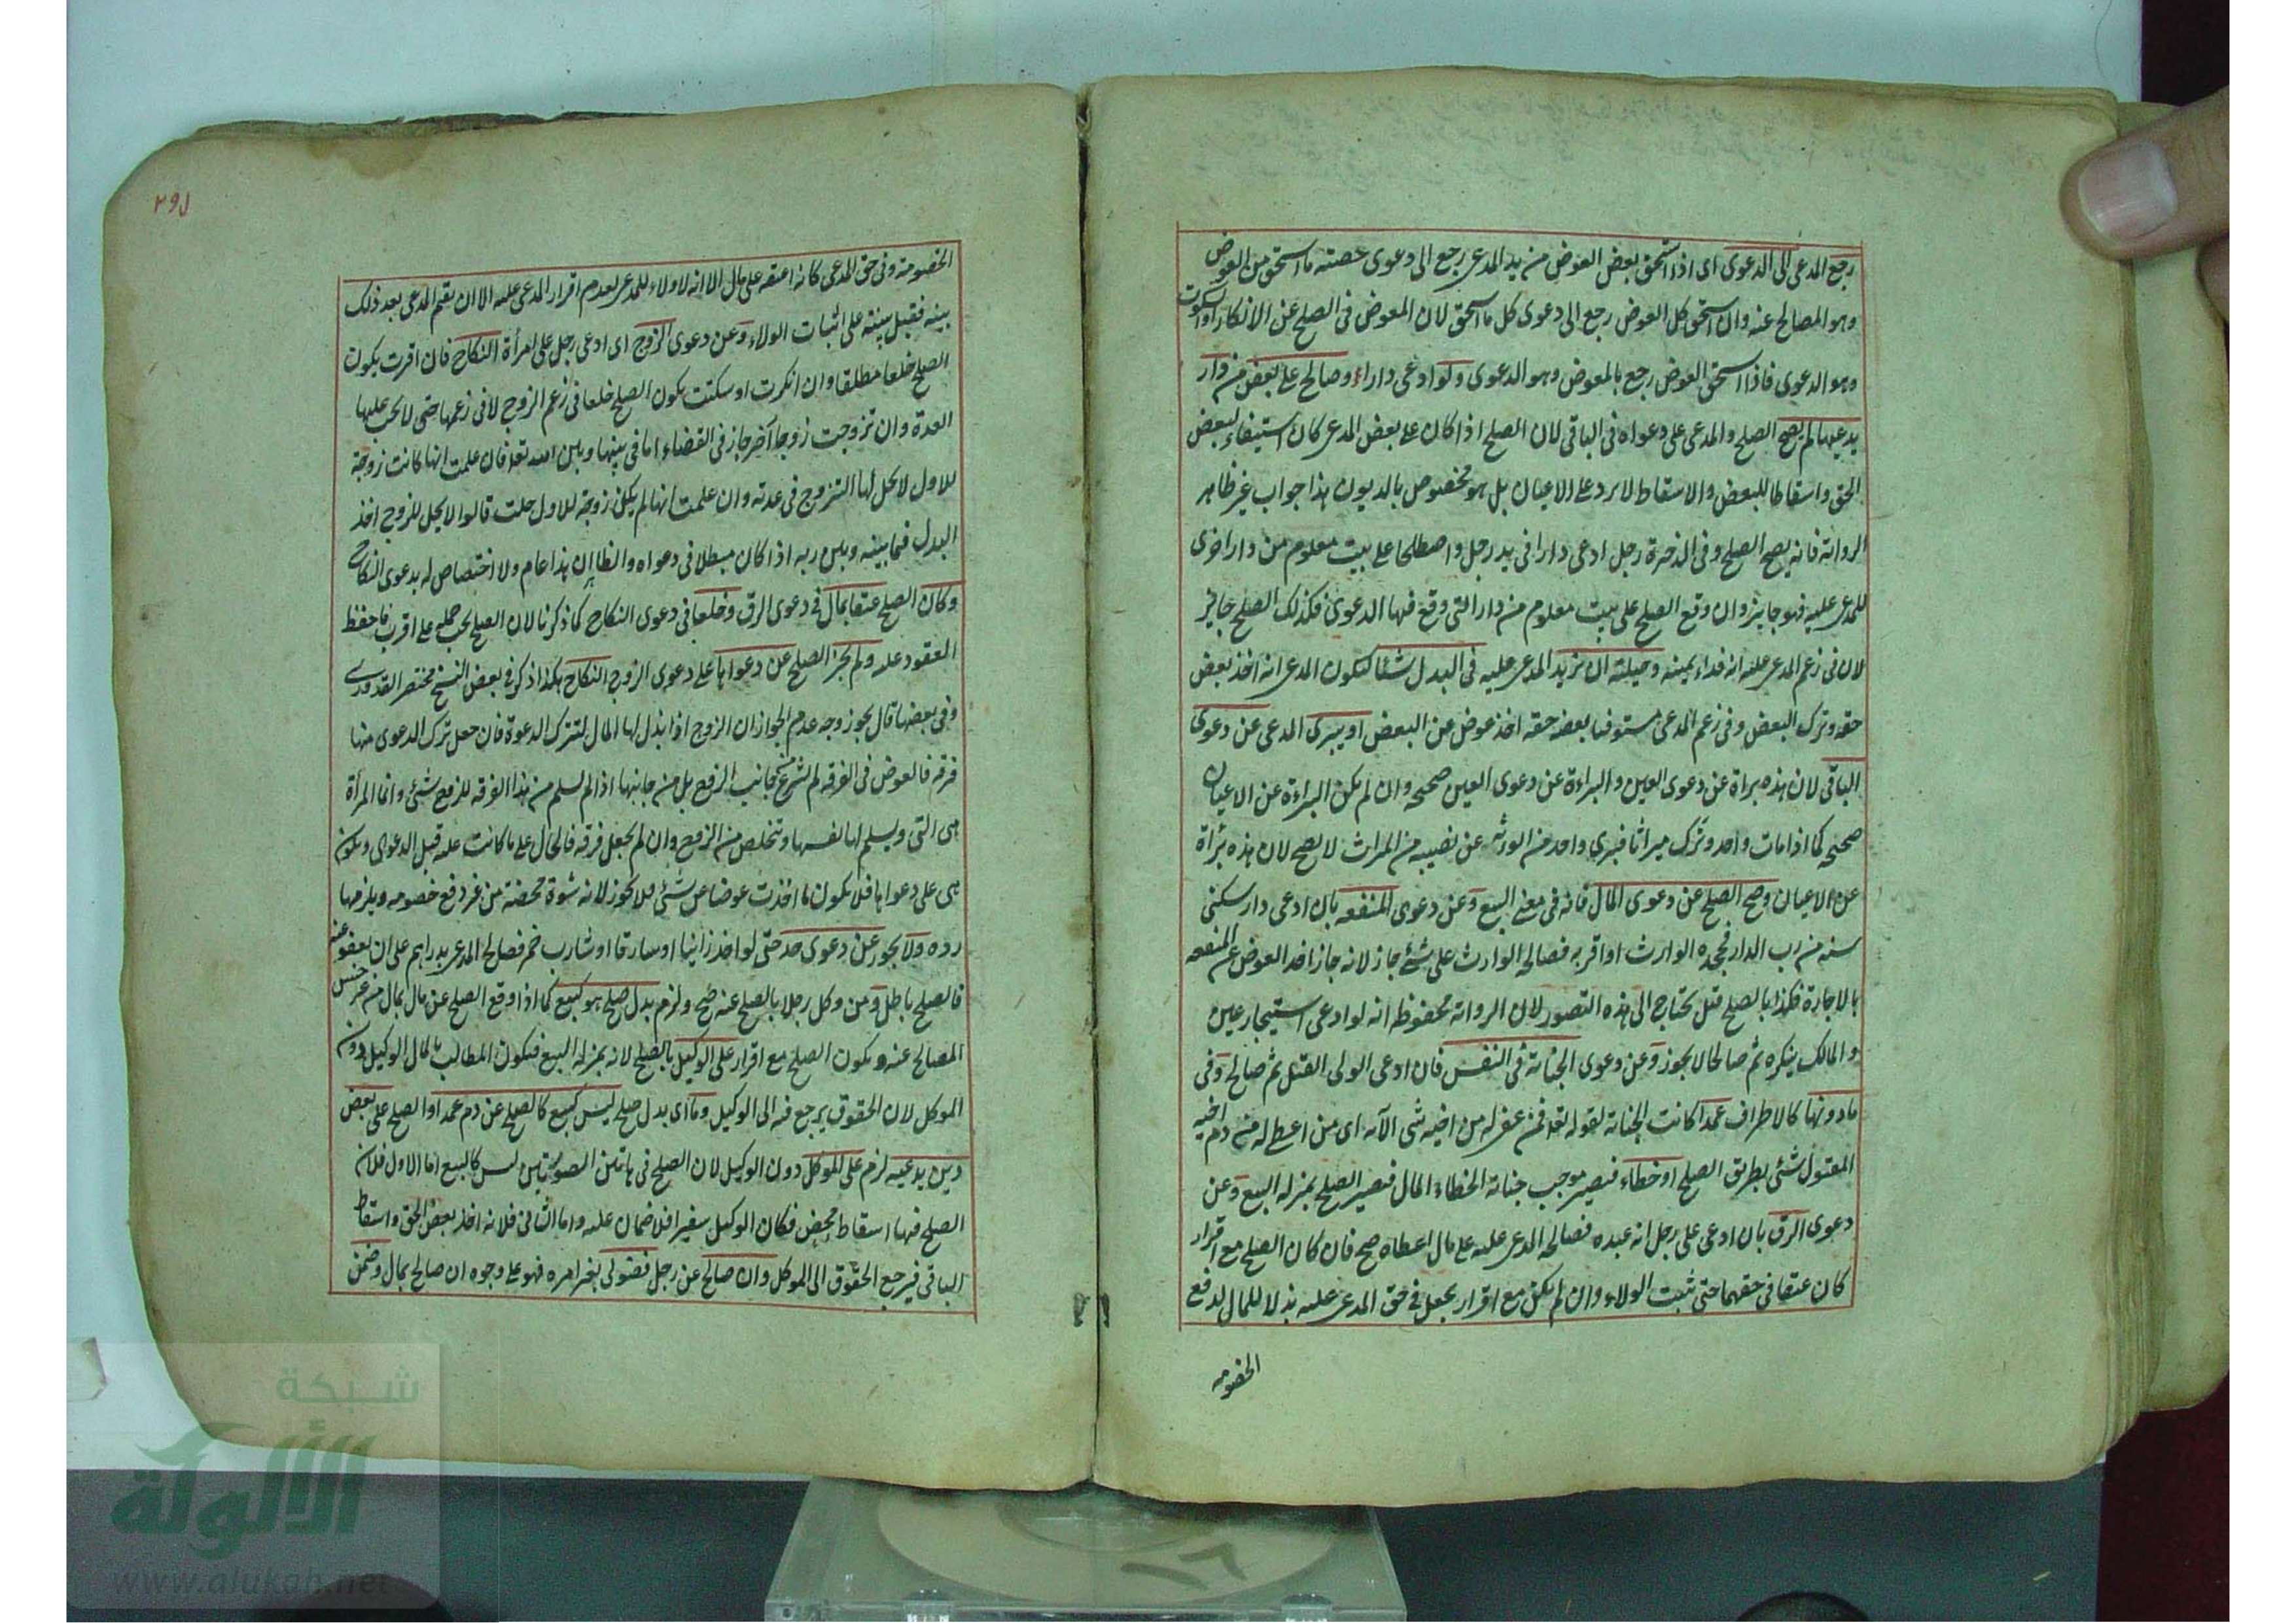 رجع المدعى الى الدعوى اى اذا استحق بعض العوض من يد المدعى رجع الى دعوى حصته ما استحق من العوض
وهو المصالح عنه وان استحق كل العوض رجع الى دعوى كل ما استحق لان المعوض فى الصلح عن الانكار او السكوت
وهو الدعوى فاذا استحق العوض رجع بالمعوض وهو الدعوى ولو ادعى دارا وصالح على بعض من دار
يدعيها لم يصح الصلح والمدعى على دعواه فى الباقى لان الصلح اذا كان على بعض المدعى كان استيفاء لبعض
الحق واسقاطا للبعض والاسقاط لا يرد على الاعيان بل هو مخصوص بالديون هذا جواب غير ظاهر
الرواية فانه يصح الصلح وفى الذخيرة رجل ادعى دارا فى يد رجل واصطلحا على بيت معلوم من دار اخرى
للمدعى عليه فهو جايز وان وقع الصلح على بيت معلوم من دار التى وقع فيها الدعوى فكذلك الصلح جائز
لان فى زعم المدعى عليه انه فداء يمينه وحيلته ان يزيد المدعى عليه فى البدل شيئا ليكون المدعى انه اخذ بعض
حقه وترك البعض وفى زعم المدعى مستوفيا بعضه حقه اخذ عوض عن البعض او يبرى المدعى عن دعوى
الباقى لان هذه براة عن دعوى العين والبراءة عن دعوى العين صحيحه وان لم يكن البراءة عن الاعيان
صحيحه كما اذا مات واحد وترك ميراثا فبرى واحد من الورثه عن نصيبه من الميراث لا يصح لان هذه براة
عن الاعيان وصح الصلح عن دعوى المال فانه فى معنى البيع وعن دعوى المنفعه بان ادعى دار سكنى
سنه من رب الدار فجحده الوارث او اقر به فصالح الوارث على شئ جاز لانه جاز اخذ العوض عن المنفعه
بالاجارة فكذا بالصلح قيل يحتاج الى هذه التصور لان الرواية محفوظة انه لو ادعى استيجار عين
والمالك ينكره ثم صالحا لا يجوز وعن دعوى الجناية فى النفس فان ادعى الولى القتل ثم صالح وفى
ما دونها كالاطراف عمدا كانت الجناية لقوله تعه فمن عفى له من اخيه شئ الآيه اى من اعطى له من دم اخيه
المقتول شئ بطريق الصلح او خطاء فيصير موجب جناية الخطاء المال فيصير الصلح بمنزله البيع وعن
دعوى الرق بان ادعى على رجل انه عبده فصالح المدعى عليه على مال اعطاه صح فان كان الصلح مع اقرار
كان عتقا فى حقهما حتى ثبت الولاء وان لم يكن مع اقرار يجعل فى حق المدعى عليه بذلا للمال لدفع
الخصومه
الخصومة وفى حق المدعى كانه اعتقه على مال الا انه لا ولاء للمدعى لعدم اقرار المدعى عليه الا ان يقيم المدعى بعد ذلك
بينه فقبل بينته على اثبات الولاء وعن دعوى الزوج اى ادعى رجل على امرأة النكاح فان اقرت يكون
الصلح خلعا مطلقا وان انكرت او سكتت يكون الصلح خلعا فى زعم الزوج لا فى زعمها حتى لا يجب عليها
العدة وان تزوجت زوجا آخر جاز فى القضاء اما فى بينها وبين الله تعه فان علمت انها كانت زوجة
للاول لا يحل لها التزوج فى عدته وان علمت انها لم يكن زوجة للاول حلت قالوا لا يحل للزوج اخذ
البدل فيما بينه وبين ربه اذا كان مبطلا فى دعواه والظا ان هذا عام ولا اختصاص له بدعوى النكاح
وكان الصلح عتقا بمال فى دعوى الرق وخلعا فى دعوى النكاح كما ذكرنا لان الصلح يجب حمله على اقرب فاحفظ
العقود عليه ولم يجز الصلح عن دعواها على دعوى الزوج النكاح هكذا ذكر فى بعض النسخ مختصر القدورى
وفى بعضها قال يجوز وجه عدم الجواز ان الزوج اذا بذل لها المال لتترك الدعوة فان جعل ترك الدعوى منها
فرقه فالعوض فى الفرقه لم يشرع من جانب الزوج بل من جانبها اذا لم يسلم من هذا الفرقه للزوج شئ وانما المرأة
هى التى ويسلم لها نفسها وتتخلص من الزوج وان لم يجعل فرقه فالحال على ما كانت عليه قبل الدعوى ويكون
هى على دعواها فلا يكون ما اخذت عوضا عن شئ فلا يجوز لانه رشوة محضة من غير دفع خصومه ويلزمها
رده ولا يجوز عن دعوى حد حتى لو اخذ زانيا او سارقا او شارب خمر فصالح المدعى بدراهم على ان يعفو عنه
فالصلح باطل ومن وكل رجلا بالصلح عنه صح ولزم بدل صلح هو كبيع كما اذا وقع الصلح عن مال بمال من غير جنس
المصالح عنه ويكون الصلح مع اقرار على الوكيل بالصلح لانه بمنزله البيع فيكون المطالب بالمال الوكيل دون
الموكل لان الحقوق يرجع فيه الى الوكيل وما اى بدل صلح ليس كبيع كالصلح عن دم عمد او الصلح على بعض
دين يدعيه لزم على الموكل دون الوكيل لان الصلح فى هاتين الصورتين ليس كالبيع اما الاول فلان
الصلح فيها اسقاط محض فكان الوكيل سفيرا فلا ضمان عليه واما الثانى فلانه اخذ بعض الحق واسقاط
الباقى فيرجع الحقوق الى الموكل وان صالح عن رجل فضولى بغير امره فهو على وجوه ان صالح بمال وضمن
شبكة
الألوكة
www.alukah.net